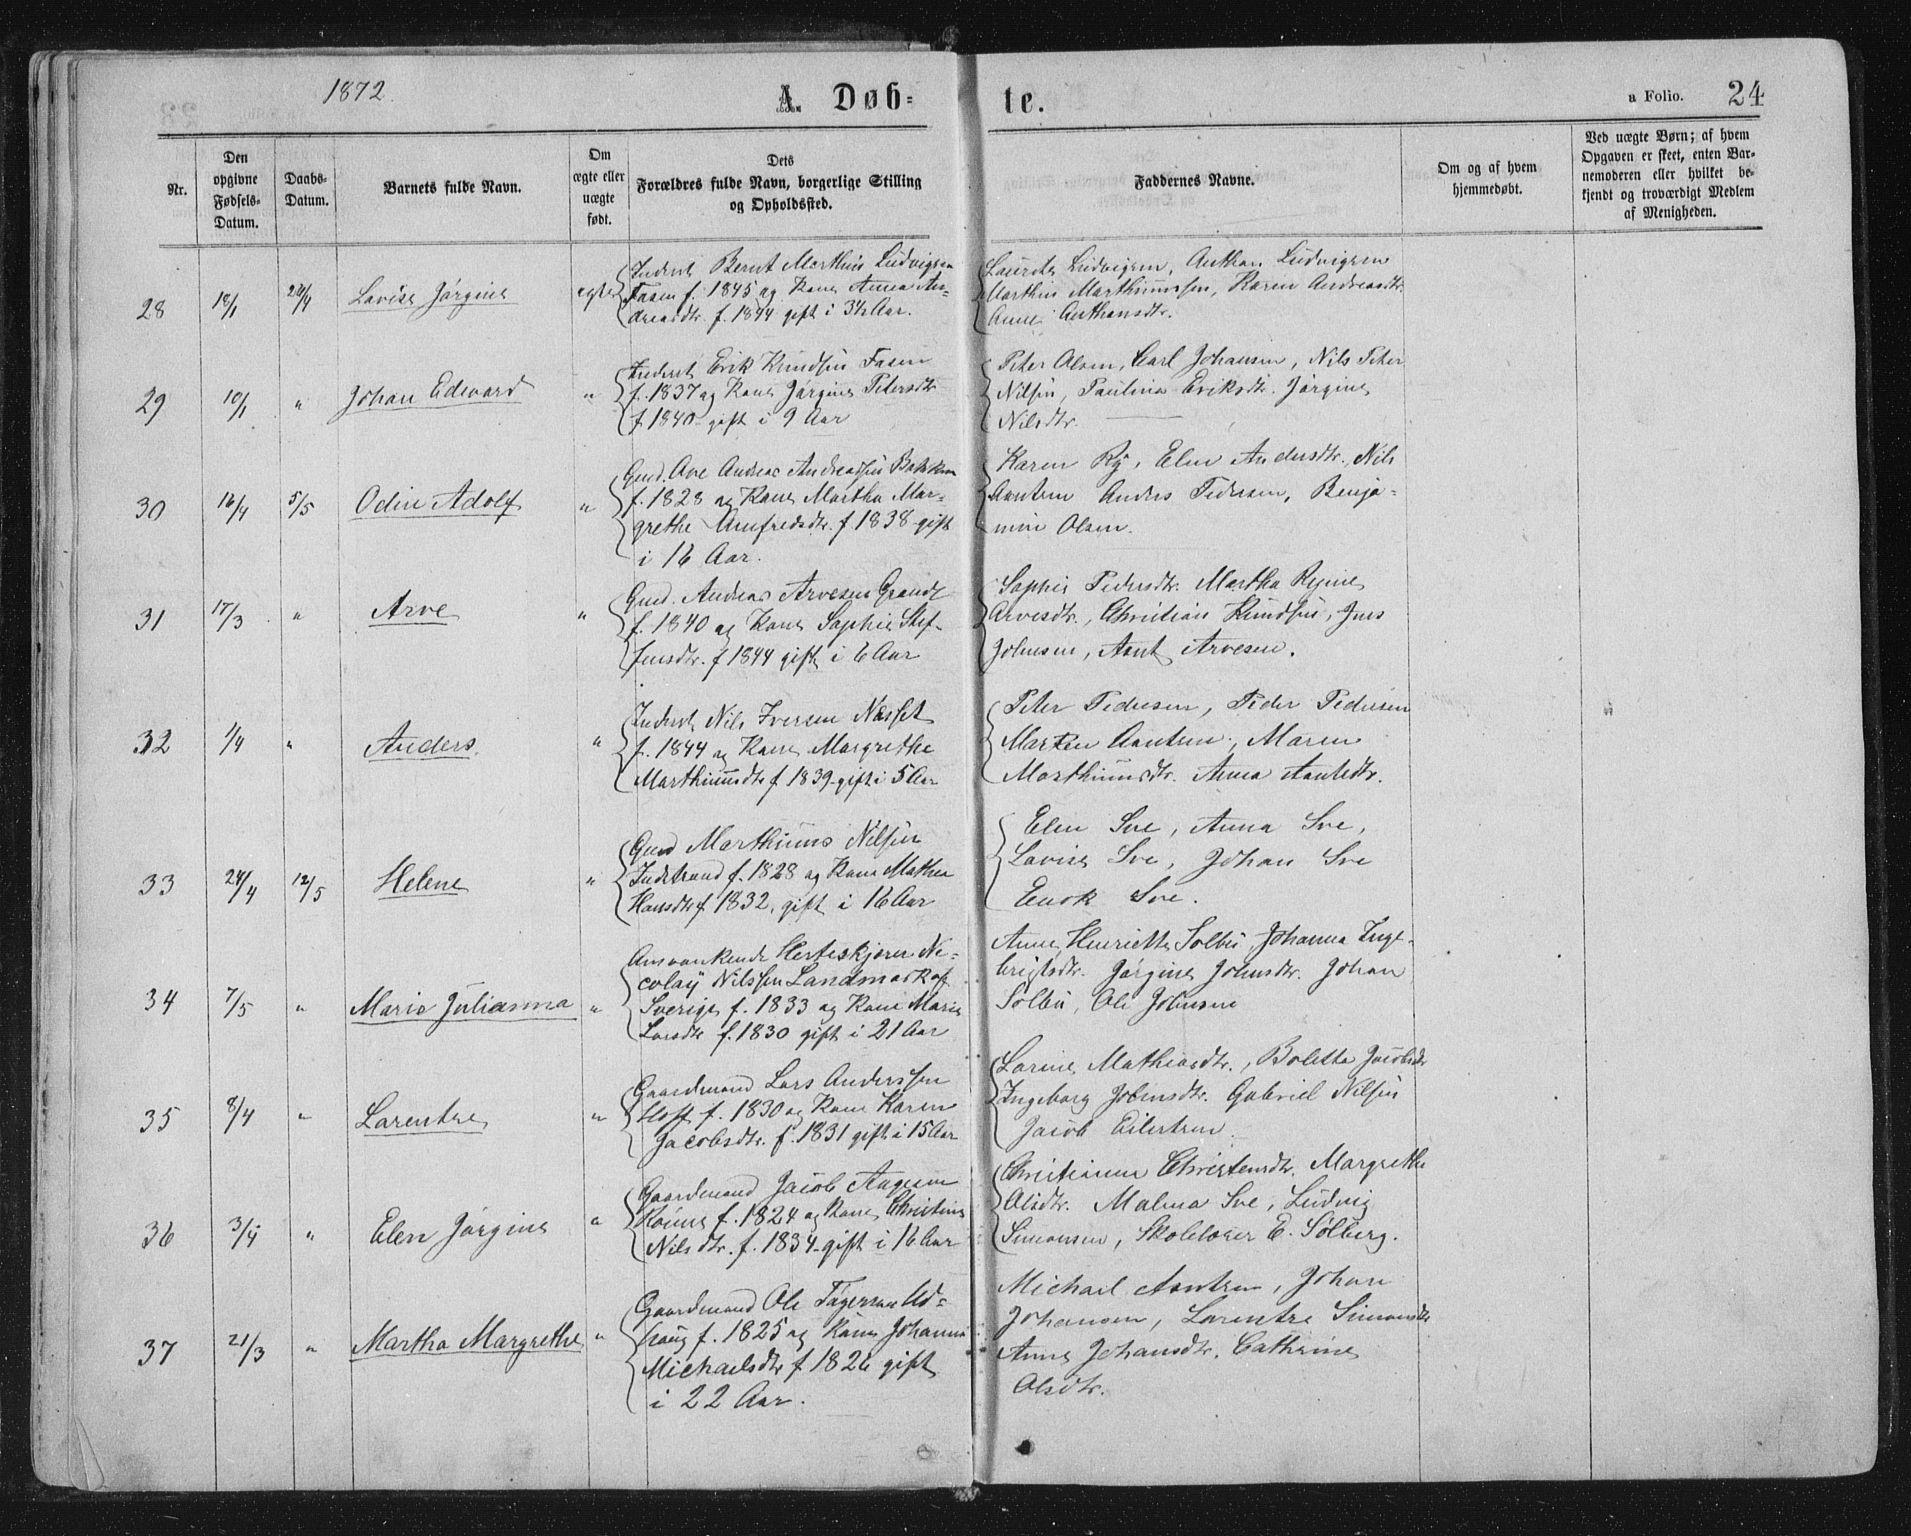 1872.
A. Døb=
te.
a Folio. 24
Nr.
Den
opgivne
Fødsels-
Datum.
Daabs-
Datum.
Barnets fulde Navn.
Om
ægte eller
uægte
født.
Dets
Forældres fulde Navn, borgerlige Stilling
og Opholdssted.
Faddernes Navne.
Om og af hvem
hjemmedøbt.
Ved uægte Børn; af hvem
Opgaven er skeet, enten Bar-
nemoderen eller hvilket be-
kjendt og troværdigt Medlem
af Menigheden.
28 18/1 Lovise Jørgine egte
Inderst Bernt Marthin Ludvigsen
Fasen f. 1845 og Kone Anna An-
dreasdtr. f. 1844 gift i 3½ Aar.
Laurits Ludvigsen, Anthon Ludvigsen
Marthin Marthinussen, Karen Andreasdtr.
Anne Anthonsdtr.
29 10/1 " Johan Edvard "
Inderst Erik Knudsen Fasen
f. 1837 og Kone Jørgine Petersdtr
f 1840 gift i 9 Aar
Peter Olsen, Carl Johansen, Nils Peter
Nilsen, Paulina Eriksdtr. Jørgine
Nilsdtr.
30 16/4 5/5 Odin Adolf "
Gmd. Ove Andreas Andreassen Bakken
f. 1828 og Kone Martha Mar-
grethe Arnfredsdtr. f 1838 gift
i 16 Aar.
Karen Ry, Elen Andersdtr., Nils
Aontsen Anders Pedersen, Benja-
min Olsen.
31 17/3 " Arve "
Gmd. Andreas Arvesen Grande
f. 1840 og Kone Sophie Stef-
fensdtr. f 1844 gift i 6 Aar
Sophie Pedersdtr. Martha Regine
Arvesdtr., Christian Knudsen, Jens
Johnsen, Aont Arvesen.
32 1/4 " Anders "
Inderst Nils Iversen Næsset
f. 1844 og Kone Margrethe
Marthinusdtr f 1839 gift i 5 Aar
Peter Pedersen, Peder Pedersen
Morten Aontsen, Maren
Marthinusdtr. Anna Aontsdtr.
33 24/4 12/5 Helene "
Gmd Marthinus Nilsen
Indstrand f. 1828 og Kone Mathea
Hansdtr f. 1832, gift i 16 Aar
Elen Sve, Anna Sve,
Lovise Sve, Johan Sve
Enok Sve.
34 7/5 " Marie Julianna "
Omvankende Hesteskjærer Ni-
colay Nilssen Landmark af
Sverige f. 1833 og Kone Marie
Larsdtr f. 1830 gift i 21 Aar
Anne Henriette Solbu, Johanna Inge-
brigtsdtr. Jørgine Johnsdtr. Johan
Solbu, Ole Johnsen
35 8/4 " Larentse "
Gaardmand Lars Anderssen
Hoff f. 1830 og Kone Karen
Jacobsdtr. f. 1831 gift i 15 Aar
Lorine Mathiasdtr., Boletta Jacobsdtr
Ingeborg Johnsdtr. Gabriel Nilsen
Jacob Eilertsen.
36 3/4 " Elen Jørgine "
Gaardmand Jacob Aagesen
f. 1824 og Kone Christine
Nilsdtr. f. 1834 gift i 16 Aar
Christianna Christensdtr. Margrethe
Olsdtr. Malena Sve, Ludvig
Simonsen, Skolelærer E. Solberg.
37 21/3 " Martha Margrethe "
Gaardmand Ole Tøgersen Ud-
haug f. 1825 og Kone Johanna
Michaelsdtr f. 1826 gift
i 22 Aar.
Michael Aontsen, Johan
Johansen, Larentse Simonsdtr
Anne Johansdtr. Cathrine
Olsdtr.